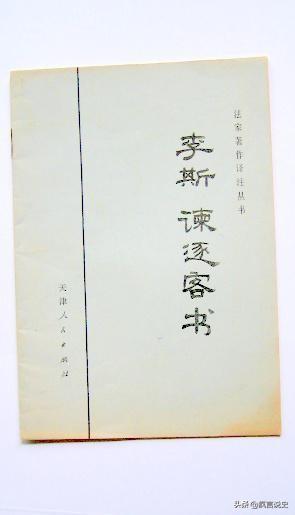 法家著作译注丛书
李斯 谏逐客书
天津人民出版社
头条@疯言说史